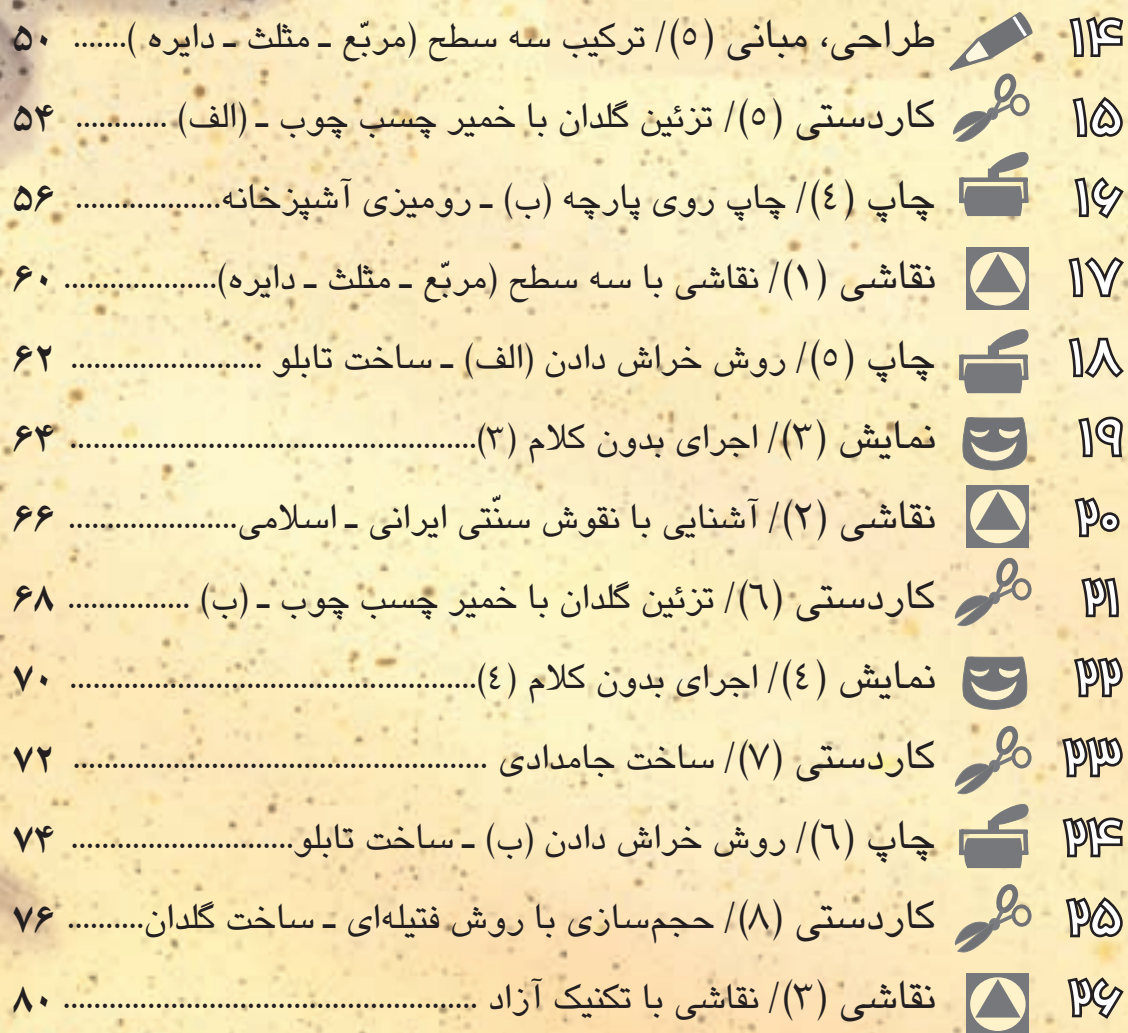 ۱۴ طراحی، مبانی (٥)/ ترکیب سه سطح (مربّع ـ مثلث ـ دایره )....... ۵۰
۱۵ کاردستی (٥)/ تزئین گلدان با خمیر چسب چوب ـ (الف) ............ ۵۴
۱۶ چاپ (٤)/ چاپ روی پارچه (ب) ـ رومیزی آشپزخانه.................. ۵۶
۱۷ نقاشی (۱)/ نقاشی با سه سطح (مربّع ـ مثلث ـ دایره)................... ۶۰
۱۸ چاپ (٥)/ روش خراش دادن (الف) ـ ساخت تابلو ........................ ۶۲
۱۹ نمایش (۳)/ اجرای بدون کلام (۳)................................................... ۶۴
۲۰ نقاشی (۲)/ آشنایی با نقوش سنّتی ایرانی ـ اسلامی..................... ۶۶
۲۱ کاردستی (٦)/ تزئین گلدان با خمیر چسب چوب ـ (ب) ................ ۶۸
۲۲ نمایش (٤)/ اجرای بدون کلام (٤)................................................... ۷۰
۲۳ کاردستی (۷)/ ساخت جامدادی .................................................... ۷۲
۲۴ چاپ (٦)/ روش خراش دادن (ب) ـ ساخت تابلو............................ ۷۴
۲۵ کاردستی (۸)/ حجم‌سازی با روش فتیله‌ای ـ ساخت گلدان.......... ۷۶
۲۶ نقاشی (۳)/ نقاشی با تکنیک آزاد .................................................... ۸۰